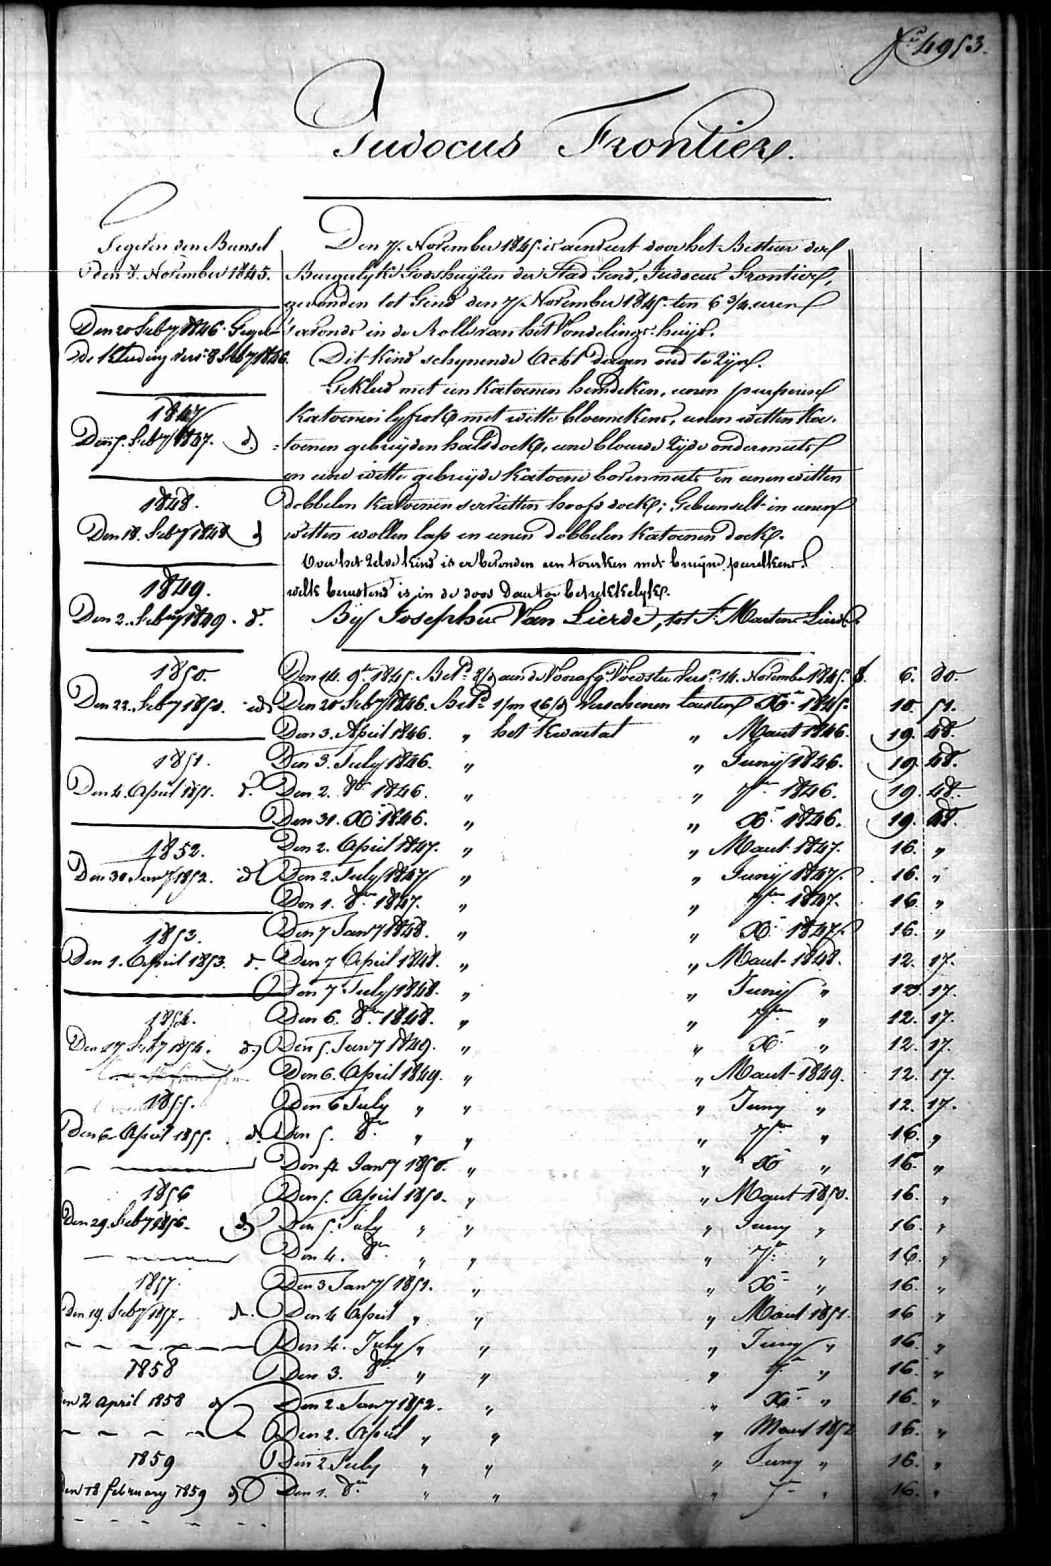 Fo 4953.
Judocus Frontier.
Gegeven den Bunsel
den 8. November 1845.
Den 20 Feb̄y 1846. Gegev:
de Kleeding vers: 8 Feb̄y 1846.
1847
Den 5. Feb̄y 1847. d
1848.
Den 18. Feb̄y 1848 d
1849.
Den 2. Feb̄y 1849. d.
1850.
Den 22. Feb̄y 1850. id
1851.
Den 4. April 1851. d.
1852.
Den 30 Jan̄y 1852. id
1853.
Den 1. April 1853. d.
1854.
Den 17 Feb̄y 1854. d.
1855.
Den 6. April 1855. d.
1856
Den 29. Feb̄y 1856. d
1857.
Den 19. Feb̄y 1857. d.
1858
en 2 april 1858 d
1859
en 18 february 1859 d
Den 7. November 1845. is aenveert door het Bestuer der
Burgerlyke Godshuyzen der Stad Gend, Judocus Frontier,
gevonden tot Gend den 7. November 1845. ten 6 3/4 uren
's avonds in de Rolle van het Vondelings-huys.
Dit Kind schynende Acht dagen oud te zyn.
Gekleed met een Katoenen hemdeken, eenen purperen
Katoenen lyfrok met witte bloemekens, eenen witten Ka-
toenen gebreyden halsdoek, eene blauwe zyde ondermuts
en eene witte gebreyde Katoene bovenmuts en eenen witten
dobbelen Katoenen servetten hoofd doek; Gebunselt in eenen
witten wollen lap en eenen dobbelen Katoenen doek.
Over het zelve kind is er bevonden een tourken met bruyne peirelkens
welk berustend is in de doos daer toe betrekkelyk.
By Josephus Van Lierde, tot St. Martens Lierde
Den 14. 9bre 1845. Bet. aan de Voorafg. Voedster vers: 14. November 1845. f. 6. 80.
Den 20 Feb̄y 1846. Bet. Verschenen tousten Xbre 1845. 10. 51.
Den 3. April 1846. " het Kwartael " Maert 1846. 19. 48.
Den 3. July 1846. " " Juny 1846. 19. 48.
Den 2. 8bre 1846. " " 7bre 1846. 19. 48.
Den 31. Xbre 1846. " " Xbre 1846. 19. 48.
Den 2. April 1847. " " Maert 1847. 16. "
Den 2. July 1847 " " Juny 1847. 16. "
Den 1. 8bre 1847. " " 7bre 1847. 16. "
Den 7 Jan̄y 1848. " " Xbre 1847. 16. "
Den 7 April 1848. " " Maert 1848. 12. 17.
Den 7 July 1848. " " Juny " 12. 17.
Den 6. 8bre 1848. " " 7bre " 12. 17.
Den 5. Jan̄y 1849. " " Xbre " 12. 17.
Den 6. April 1849. " " Maert 1849. 12. 17.
Den 6 July " " " Juny " 12. 17.
Den 5. 8bre " " " 7bre " 16. "
Den 4. Jan̄y 1850. " " Xbre " 16. "
Den 5. April 1850. " " Maert 1850. 16. "
Den 5. July " " " Juny " 16. "
Den 4. 8bre " " " 7bre " 16. "
Den 3 Jan̄y 1851. " " Xbre " 16. "
Den 4 April " " " Maert 1851. 16 "
Den 4. July " " " Juny " 16. "
Den 3. 8bre " " " 7bre " 16. "
Den 2. Jan̄y 1852. " " Xbre " 16. "
Den 2. April " " " Maert 1852 16. "
Den 2 July " " " Juny " 16. "
Den 1. 8bre " " " 7bre " 16. "